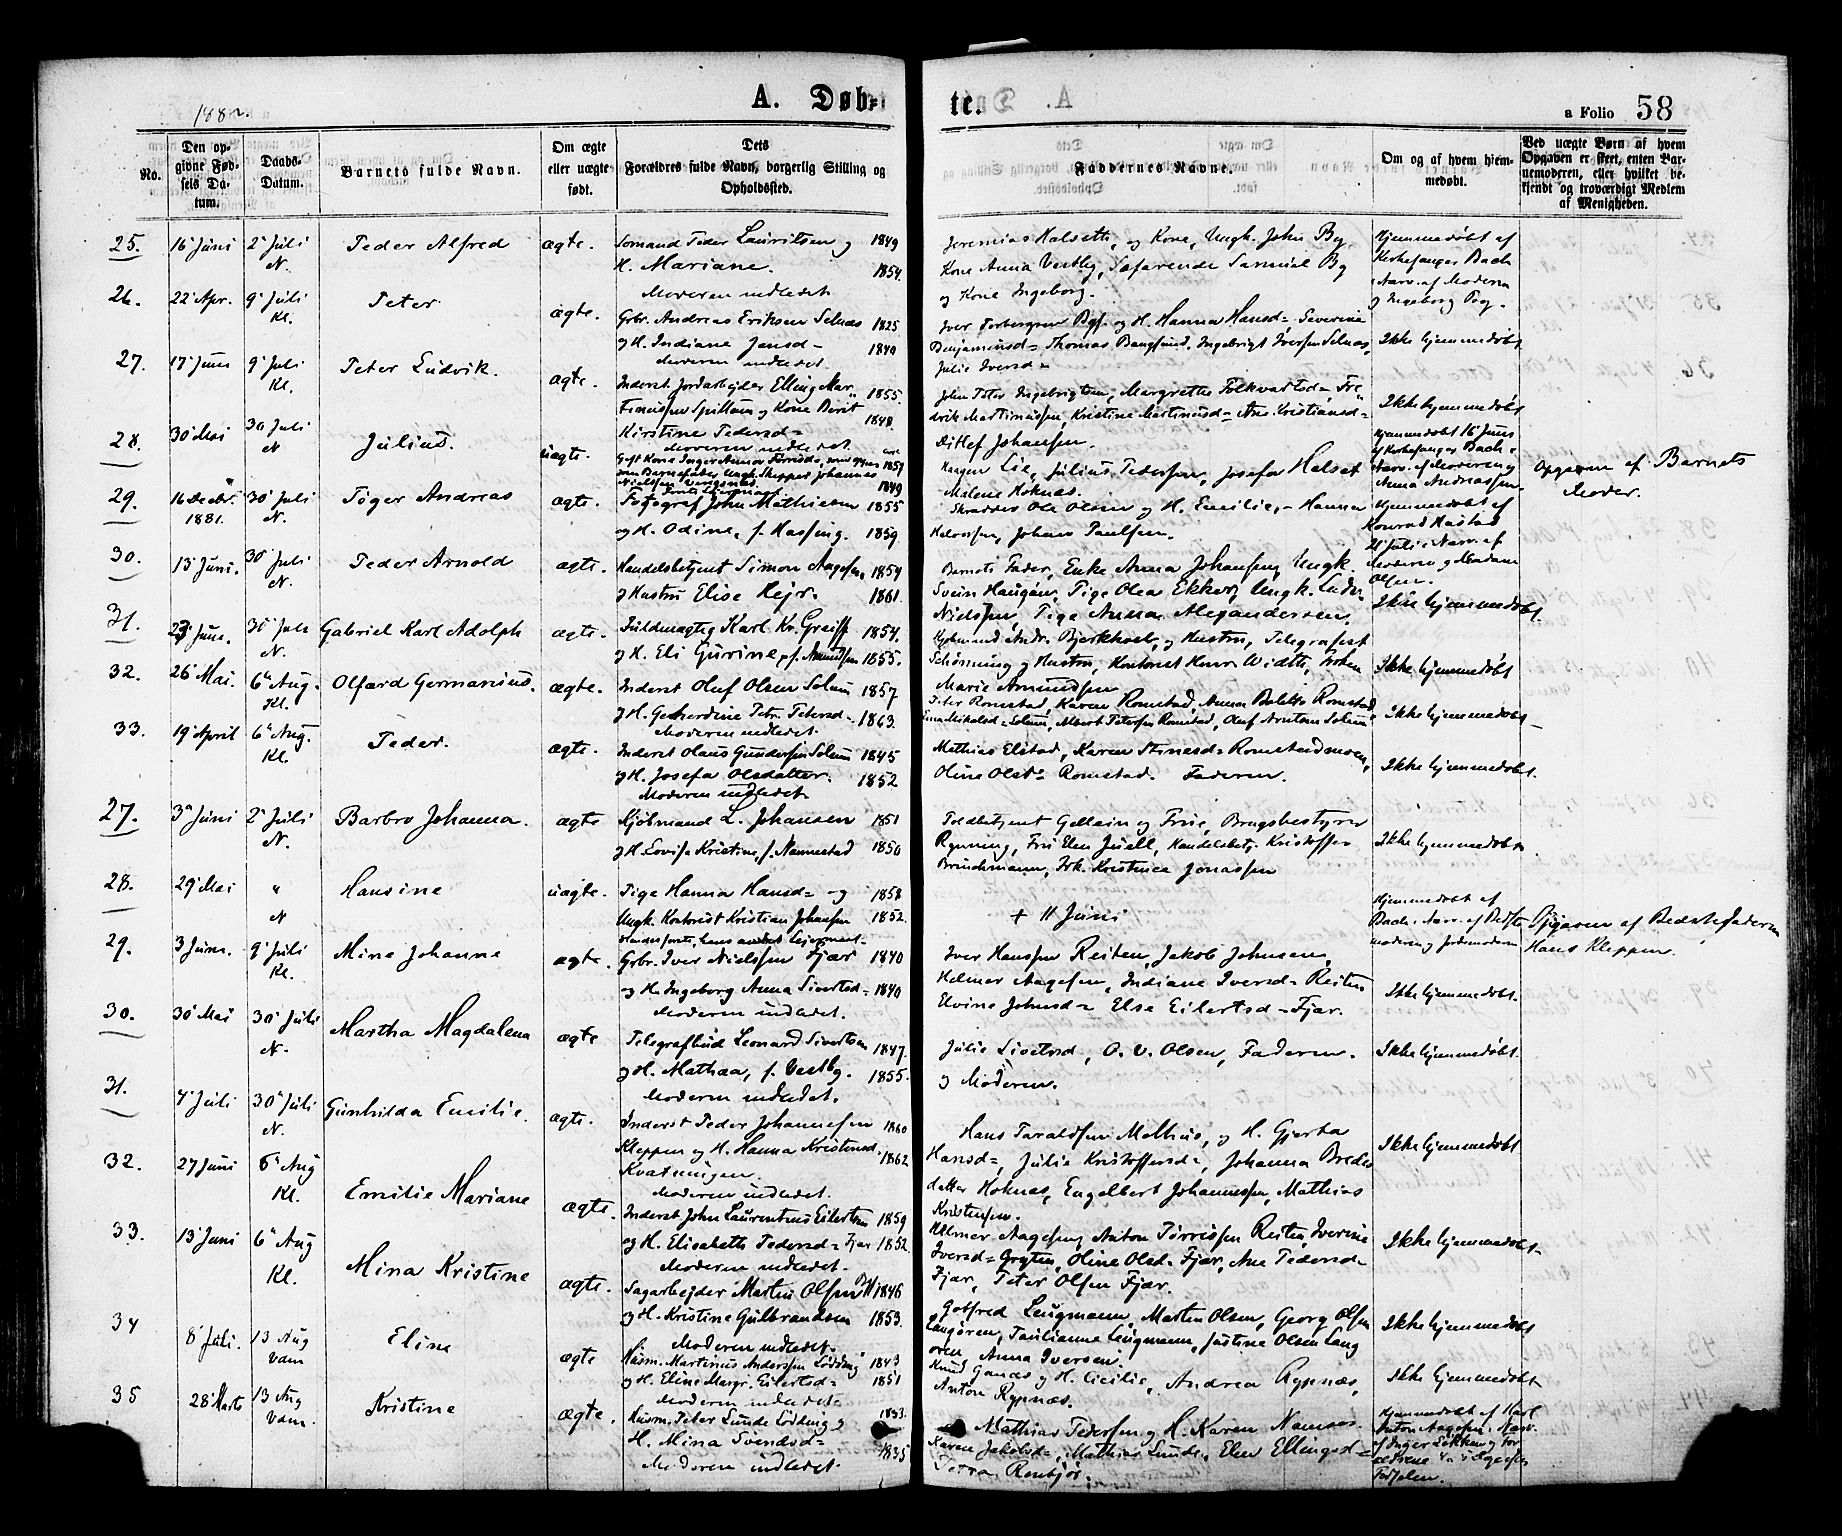 1882.
A. Døb-
te.
a Folio 58
No.
Den op-
givne Fød-
sels Da-
tum.
Daabs-
Datum.
Barnets fulde Navn.
Om ægte
eller uægte
født.
Dets
Forældres fulde Navn, borgerlig Stilling og
Opholdssted.
Faddernes Navne.
Om og af hvem hjem-
medøbt.
Ved uægte Børn af hvem
Opgaven er skeet, enten Bar-
nemoderen, eller hvilket be-
kjendt og troværdigt Medlem
af Menigheden.
25. 16 Juni 2 Juli N. Peder Alfred ægte. Sømand Peder Lauritsen og 1849
H. Mariane. 1854.
Moderen indledet
Jeremias Halseth, og Kone, Ungk. John By,
Kone Anna Vestby, Søfarende Samuel By
og Kone Ingeborg.
Hjemmedøbt af
Bach
Nærv. af Moderen
og Ingeborg By.
26. 22 Apr. 9 Juli Kl. Peter ægte. Grbr. Andreas Eriksen Selnæs 1825
og H. Indiane Jensd= 1840
Moderen indledet
Iver Torbergsen og H. Hanna Hansd= Severine
Benjaminsd= Thomas Bangsund, Ingebrigt Iversen Selnæs,
Julie Iversd=
Ikke hjemmedøbt
27. 17 Juni 9 Juli Kl. Peter Ludvik. ægte. Inderst Jordarbejder Elling Mar- 1855.
Spillum og Kone Berit 1848
Kirstine Pedersd=
Moderen indledet
John Peter Ingebrigtsen, Margrethe Folkvartsd= Fre-
drik Martinussen, Kristine Martinusd= Ane Kristiansd=
Ditlef Johansen.
Ikke hjemmedøbt
28. 30 Mai 30 Juli N Julius. uægte. Gift Kone Inger 1859
som Barnefader Ungk. Skipper Johannes
Nielsen 1849
Lie, Julius Pedersen, Josefa Halset
Malene Høknæs.
Hjemmedøbt 16 Juni
af Bach
Nærv. af Moderen og
Anna Andreassen.
Opgaven af Barnets
Moder.
29. 16 Decbr. 1881. 30 Juli N. Tøger Andreas ægte. Fotograf John Mathiesen 1855
og H. Odine, f. Hassing. 1859.
Skrædder Ole Olsen og H. Emilie, Hanna
Johan Paulsen.
Hjemmedøbt af
Konrad Hustad
21 Juli i Nærv. af
Moderen og Madam
Olsen.
30. 13 Juni. 30 Juli N. Peder Arnold ægte. Handelsbetjent Simon Aagesen 1854
og Hustru Elise Hejr. 1861.
Barnets Fader, Enke Anna Johansen, Ungk.
Svein Haugan, Pige Olea Ekker, Ungk. Peder
Nielsen, Pige Anna Alexandersen.
Ikke hjemmedøbt.
31. 23 Juni. 30 Juli N. Gabriel Karl Adolph ægte. Fuldmægtig Karl Kr. Greiff 1854.
og H. Eli Gurine, f. Amundsen 1855.
Kjøbmand Andr. Bjerkhoel, og Hustru, Telegrafist
Schønning og Hustru, Kontorist Width, Frøken
Marie Amundsen
Ikke hjemmedøbt
32. 26 Mai. 6 Aug. Kl. Olfard Germanius. ægte. Inderst Oluf Olsen Selum 1857
og H. Gerhardine Petr. Petersd= 1863.
Moderen indledet
Peter Romstad, Karen Romstad, Anna Romstad
Mikalsd= Selum, Albert Petersen Romstad, Oluf Selum
Ikke hjemmedøbt
33. 19 April 6 Aug. Kl. Peder. ægte. Inderst Olaus Gundersen Selum 1845
og H. Josefa Olsdatter 1852
Moderen indledet
Mathias Elstad, Karen Romstadmoen,
Oline Olsd= Romstad. Faderen.
Ikke hjemmedøbt.
27. 3 Juni 2 Juli N. Barbro Johanna. ægte Kjøbmand L. Johansen 1851
og H. Lovise Kristine, f. Nannestad 1850
Toldbetjent Gellein og Frue, Brugsbestyrer
Rynning, Fru Elen Juell, Handelsbetj. Kristoffer
Brinchmann, Frk. Kristence Jonassen
Ikke hjemmedøbt
28. 29 Mai " N Hansine uægte. Pige Hanna Hansd= og 1858
Ungk. Kontorist Kristian Johansen 1852.
+ 11 Juni
Hjemmedøbt af
Bach, Nærv. af Bedste-
moder og Jordemoderen
Opgaven af Bedstefaderen
Hans Kleppen.
29. 3 Juni. 9 Juli Kl. Mina Johanne ægte. Grbr. Iver Nielsen Fjær 1840
og H. Ingeborg Anna Sivertsd= 1840
Moderen indledet.
Iver Hanssen Reiten, Jakob Johnsen,
Helmer Aagesen, Indiane Iversd= Reiten
Elvine Johnsd= Else Eilertsd= Fjær.
Ikke hjemmedøbt.
30. 30 Mai 30 Juli N. Martha Magdalena ægte Telegrafbud Leonard Sivertsen 1847.
og H. Mathea, f. Vestby. 1855.
Moderen indledet.
Julie Sivertsd, O. V. Olsen, Faderen
og Moderen.
Ikke hjemmedøbt.
31. 4 Juli 30 Juli N. Gunhilda Emilie. ægte. Inderst Peder Johannesen 1860
Kleppen og H. Hanna Kristensd. 1862
Kvatningen.
Moderen indledet.
Hans Taraldsen Melhus, og H. Gjerta
Hansd=, Julie Kristoffersd=, Johanna Bredes
datter Høknæs, Engelbert Johannessen, Mathias
Kristensen.
Ikke hjemmedøbt
32. 27 Juni 6 Aug Kl. Emilie Mariane ægte. Inderst John Laurentius Eilertsen 1859
og H. Elisabeth Pedersd= Fjær 1852.
Moderen indledet.
Helmer Aagesen, Anton Tørrissen Reiten, Iverine
Iversd= Grøten, Oline Olsd= Fjær, Ane Pedersd=
Fjær, Peter Olsen Fjær.
Ikke hjemmedøbt
33. 13 Juni 6 Aug Kl. Mina Kristine ægte. Sagarbejder Martin Olsen 1846
og H. Kristine Gulbrandsen 1853.
Moderen indledet.
Gotfred Leugmann, Martin Olsen, Georg Olsen
Langøren, Pauliane Leugmann, Justine Olsen Lang
øren, Anna Iversen.
Ikke hjemmedøbt
34 8 Juli. 13 Aug Vam Eline ægte Husm. Martinus Anderssen Lødding 1843
og H. Eline Margr. Eilertsd= 1851
Moderen indledet
Knud Ganæs og H. Cicilie, Andrea Rypnæs,
Anton Rypnæs.
Ikke hjemmedøbt
35 28 Marts 13 Aug Vam. Kristine ægte. Husm. Peter Lunde Lødding og 1833.
H. Mina Svendsd= 1835
Moderen indledet.
Mathias Pedersen og H. Karen Namsos.
Karen Jakobsd=, Mathias Lunde, Elen Ellingsd=
Petra Rønbjør.
Hjemmedøbt af Karl
Anton Aagesen, Nærv.
af Inger Løkken og For
ældrene
Fødselen.